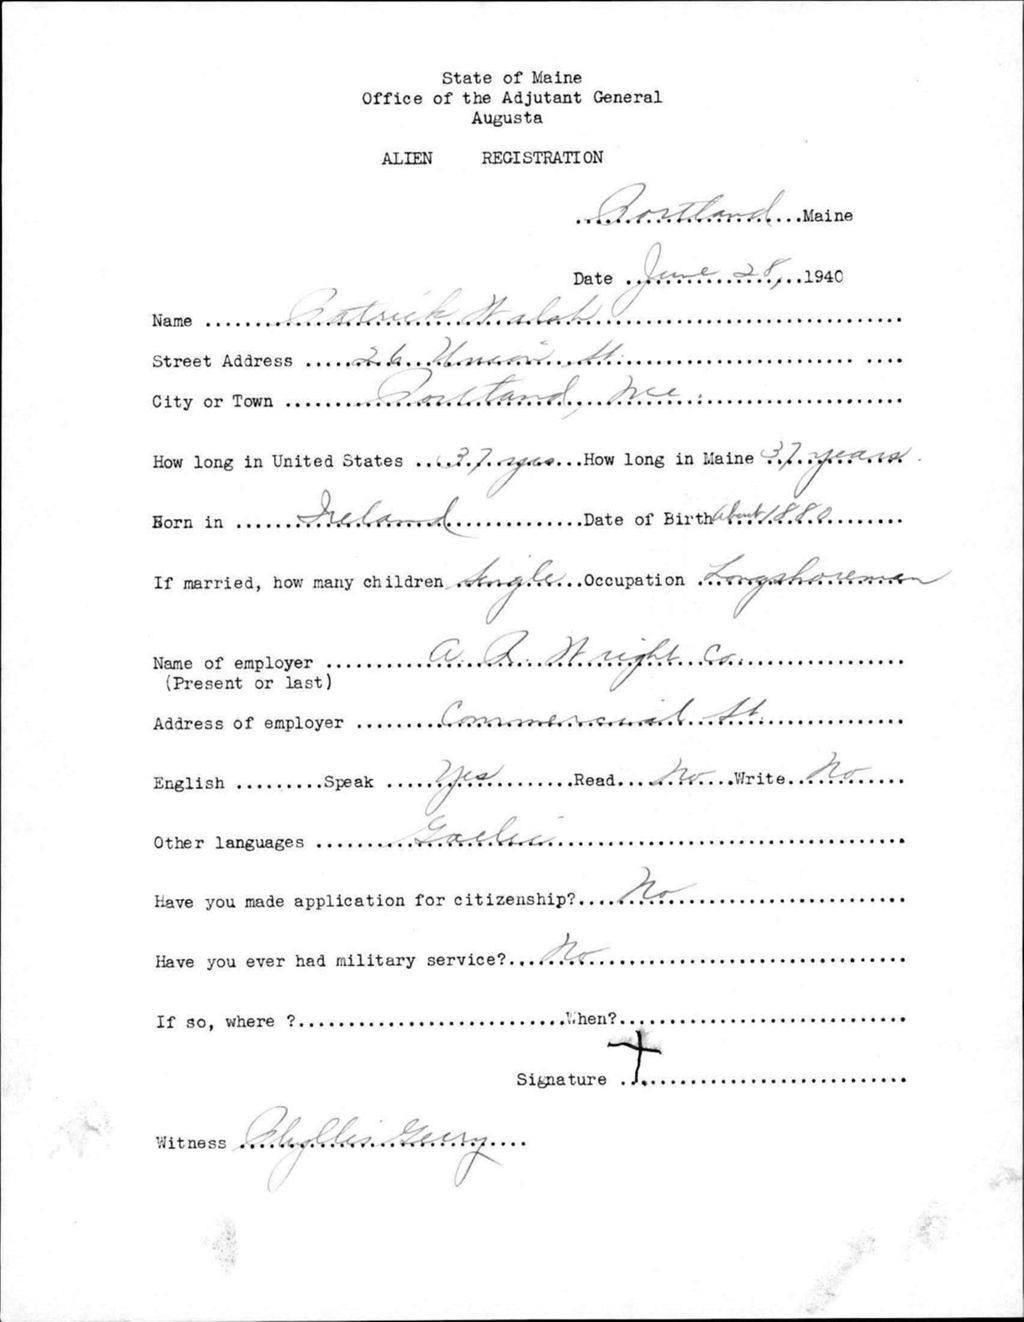 State of Maine
Office of the Adjutant General
Augusta
ALIEN REGISTRATION
Portland Maine
Date June 28, 1940
Name Patrick Walsh
Street Address 26 Union St.
City or Town Portland, Me.
How long in United States 37 yrs How long in Maine 37 years
Born in Ireland Date of Birth About 1880
If married, how many children Single Occupation Longshoreman
Name of employer A. R. Wright Co.
(Present or last)
Address of employer Commercial St.
English Speak Yes Read No Write No
Other languages Gaelic
Have you made application for citizenship? No
Have you ever had military service? No
If so, where ? When?
Signature
Witness Phyllis Geery